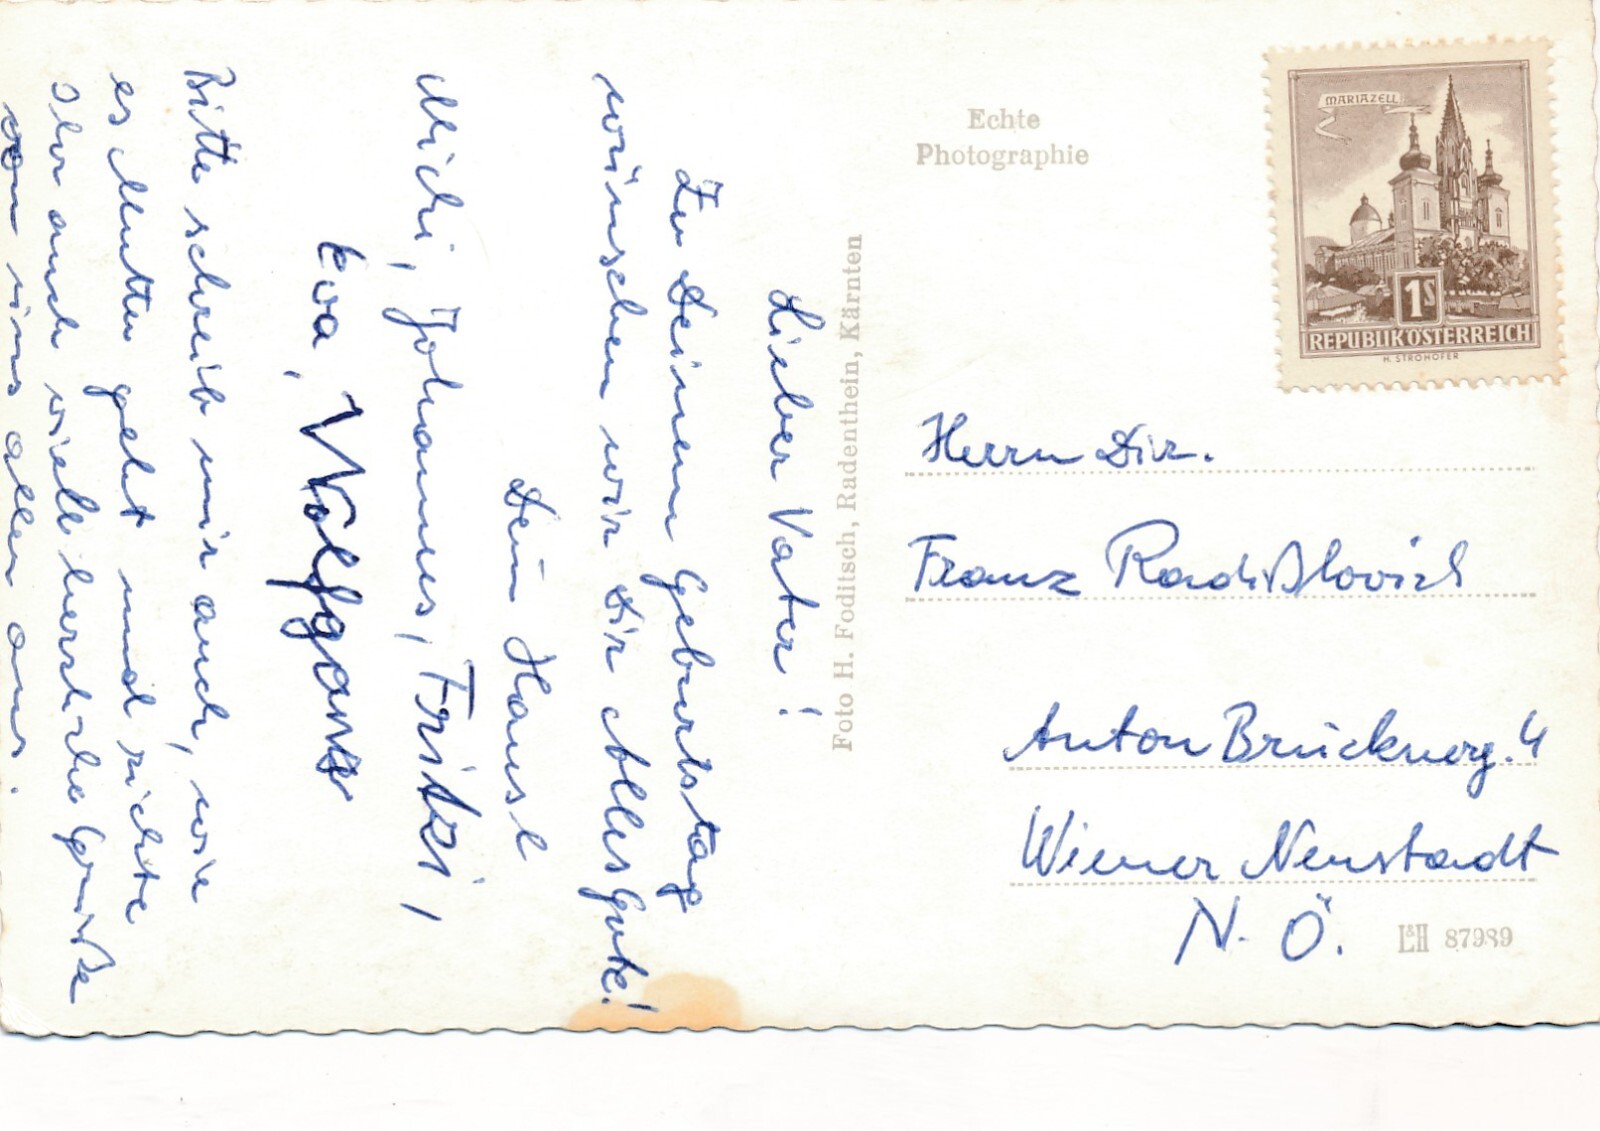 Lieber Vater!
Zu Deinem Geburtstag
wünschen wir Dir Alles Gute!
Dein Hansl
Michi, Johannes, Fritzi,
Eva, Wolfgang
Bitte schreib mir auch, wie
es Mutter geht und richte
ihr auch viele herzliche Grüße
von uns allen aus.
Echte
Photographie
Foto H. Foditsch, Radenthein, Kärnten
MARIAZELL
1S
REPUBLIK ÖSTERREICH
H. STROHOFER
Herrn Dir.
Franz
Anton Brucknerg. 4
Wiener Neustadt
N. Ö.
L&H 87989